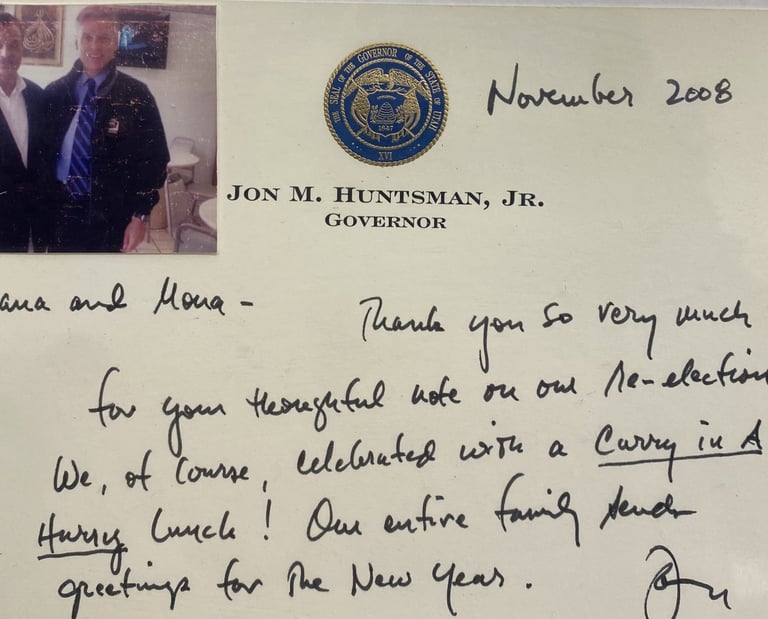 THE SEAL OF THE GOVERNOR OF THE STATE OF UTAH
1847
XVI
November 2008
JON M. HUNTSMAN, JR.
GOVERNOR
ana and Mona - Thank you so very much
for your thoughtful note on our re-election
We, of course, celebrated with a Curry in A
Hurry lunch! Our entire family sends
greetings for the New Year. Jon